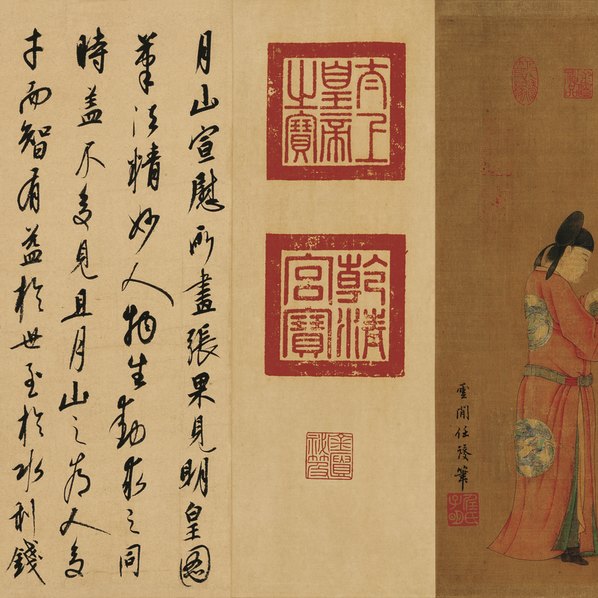 雲閒任筆
任氏子明
太上皇帝之寶
乾清宮寶
月山宣慰所畫張果見明皇圖
筆法精妙人物生動求之同
時蓋不多見且月山之為人多
才而智有益於世至於水利錢